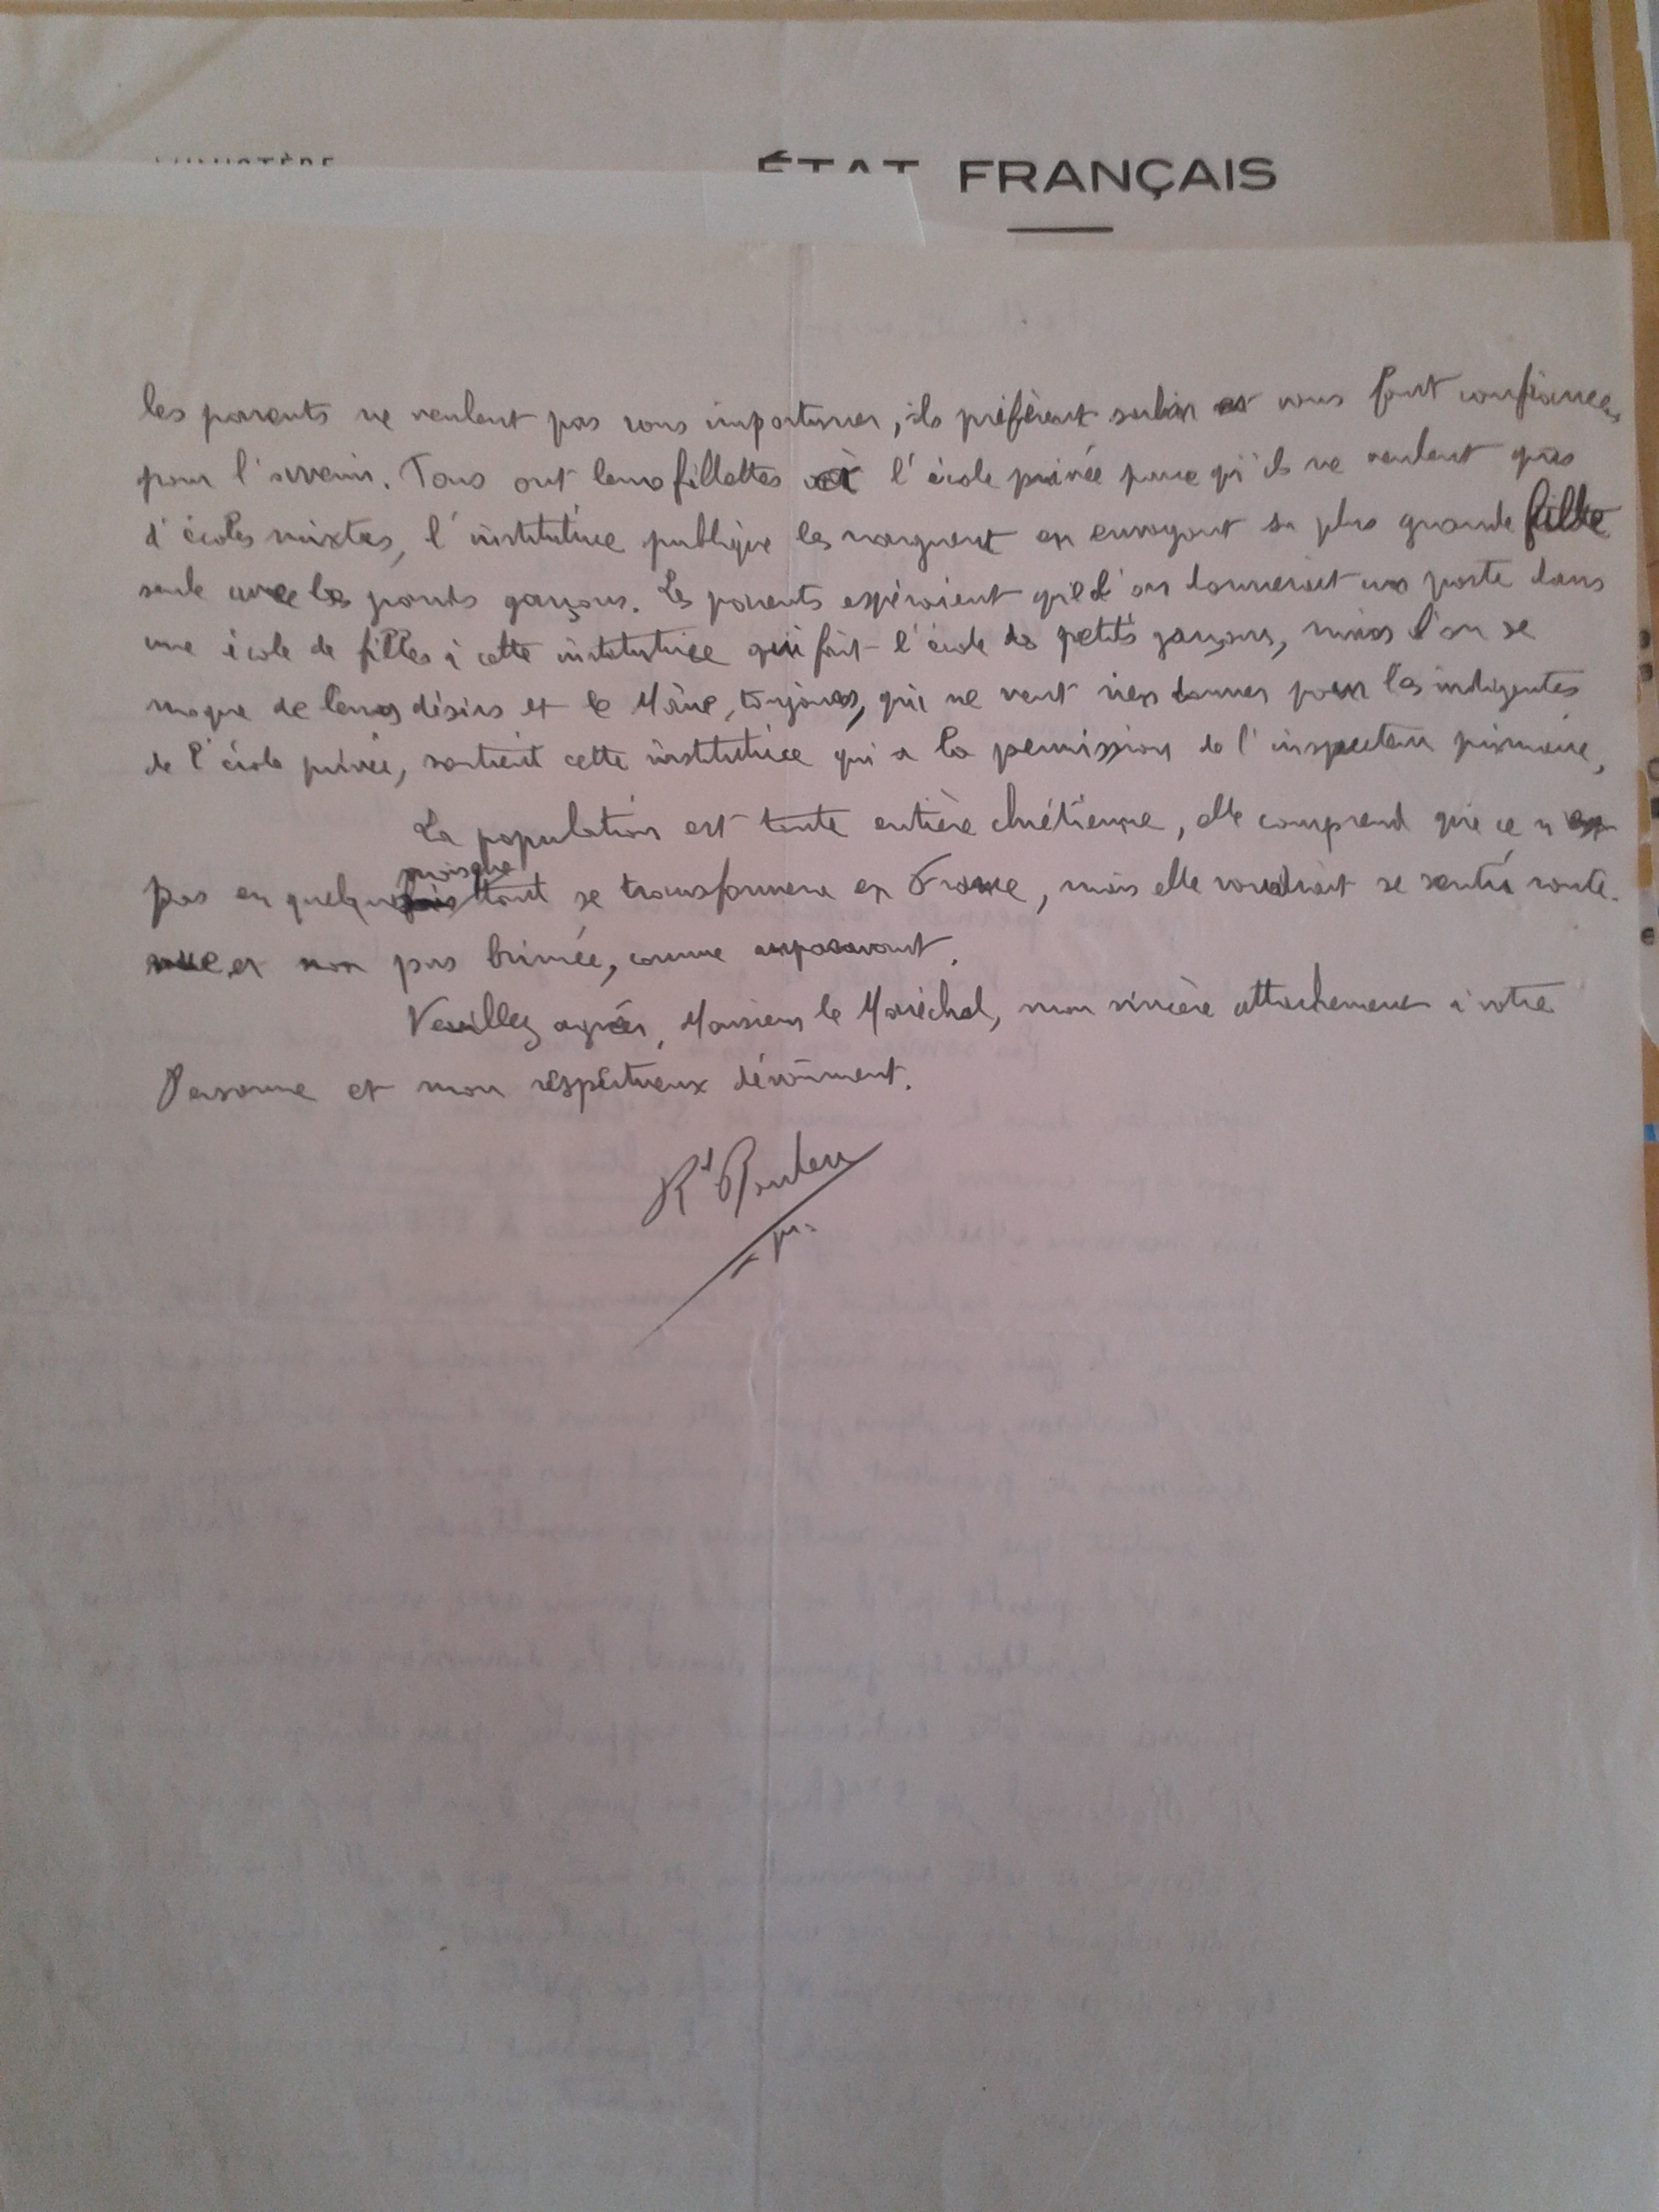 MINISTÈRE
ÉTAT FRANÇAIS
les parents ne veulent pas vous importuner, ils préfèrent subir et vous font confiance
pour l'avenir. Tous ont leurs fillettes à l'école privée parce qu'ils ne veulent pas
d'écoles mixtes, l'institutrice publique les narguent en envoyant sa plus grande fille
seule avec les grands garçons. Les parents espéraient que l'on donnerait un poste dans
une école de filles à cette institutrice qui fait l'école des petits garçons, mais l'on se
moque de leurs désirs et le Maire, toujours, qui ne veut rien donner pour les indigentes
de l'école privée, soutient cette institutrice qui a la permission de l'inspecteur primaire,
La population est toute entière chrétienne, elle comprend que ce n'est
puisque
pas en quelques tout se transformera en France, mais elle voudrait se sentir soute-
nue et non pas brimée, comme auparavant.
Veuillez agréer, Monsieur le Maréchal, mon sincère attachement à votre
Personne et mon respectueux dévoûment.